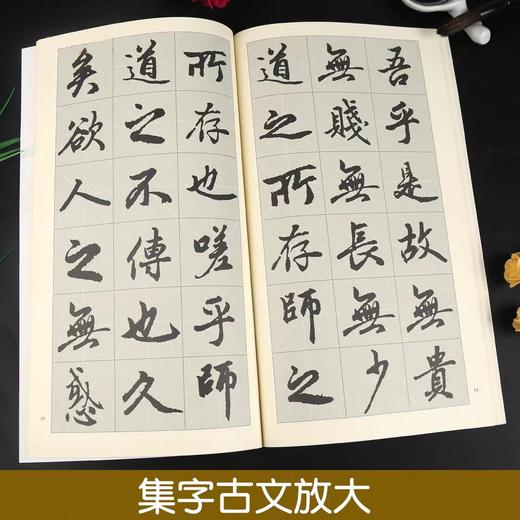 吾乎是故無貴
無賤無長無少
道之所存師之
所存也嗟乎師
道之不傳也久
矣欲人之無惑
54
55
集字古文放大